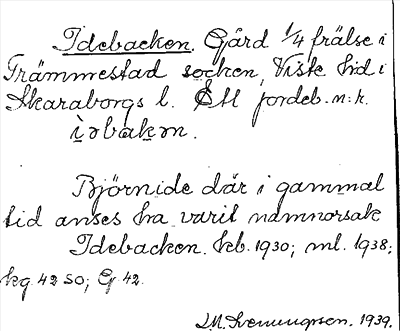 Idebacken. Gård 1/4 frälse i
Främmestad socken, Viste hd i
Skaraborgs l. Ett jordeb. n:r.
Björnide där i gammal
tid anses ha varit namnorsak
Idebacken. hb. 1930; ml. 1938;
kg. 42 SO; G 42.
1939.